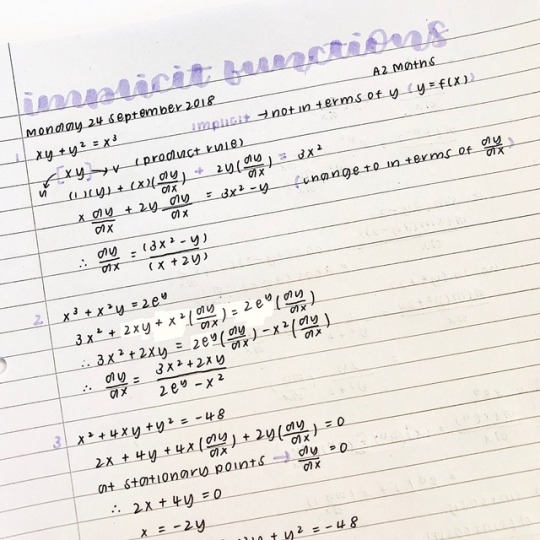 implicit functions
A2 Maths
Monday 24 September 2018
implicit → not in terms of y (y = f(x))
1 xy + y² = x³
u [xy] → v (product rule)
(1)(y) + (x)(dy/dx) + 2y(dy/dx) = 3x²
x dy/dx + 2y dy/dx = 3x² - y (change to in terms of dy/dx)
∴ dy/dx = (3x² - y)/(x + 2y)
2 x³ + x²y = 2eʸ
3x² + 2xy + x²(dy/dx) = 2eʸ(dy/dx)
∴ 3x² + 2xy = 2eʸ(dy/dx) - x²(dy/dx)
∴ dy/dx = 3x² + 2xy/2eʸ - x²
3 x² + 4xy + y² = -48
2x + 4y + 4x(dy/dx) + 2y(dy/dx) = 0
at stationary points → dy/dx = 0
∴ 2x + 4y = 0
x = -2y
+ y² = -48